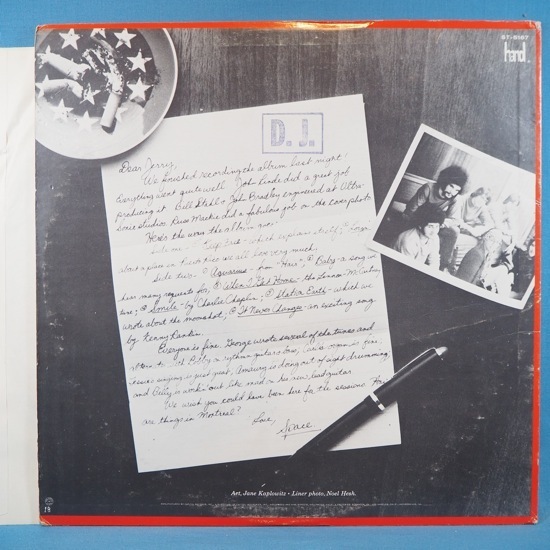 ST-5167
hand
D. J.
Dear Jerry,
We finished recording the album last night!
Everything went quite well. John Linde did a great job
producing it. Bill Stahl & John Bradley engineered at Ultra-
sonic studios. Russ Mackie did a fabulous job on the cover photo.
Here's the way the album goes:
Side one - "Trip East - which explains itself;
about a place in Puerto Rico we all love very much.
Side two - Aquarius - from "Hair"; Baby - a song we
have many requests for; When I Get Home - the Lennon-McCartney
tune; Smile - by Charlie Chaplin; Station Earth - which we
wrote about the moonshot; It Never Changes - an exciting song
by Kenny Rankin.
Everyone is fine. George wrote several of the tunes and
Bobby on rhythm guitar & bass,
singing is just great, Amaury is doing out of sight drumming,
and Billy is workin' out like mad on his new lead guitar.
We wish you could have been here for the sessions. How
are things in Montreal?
Love,
Space
Art, Jane Kaplowitz • Liner photo, Noel Hesh.